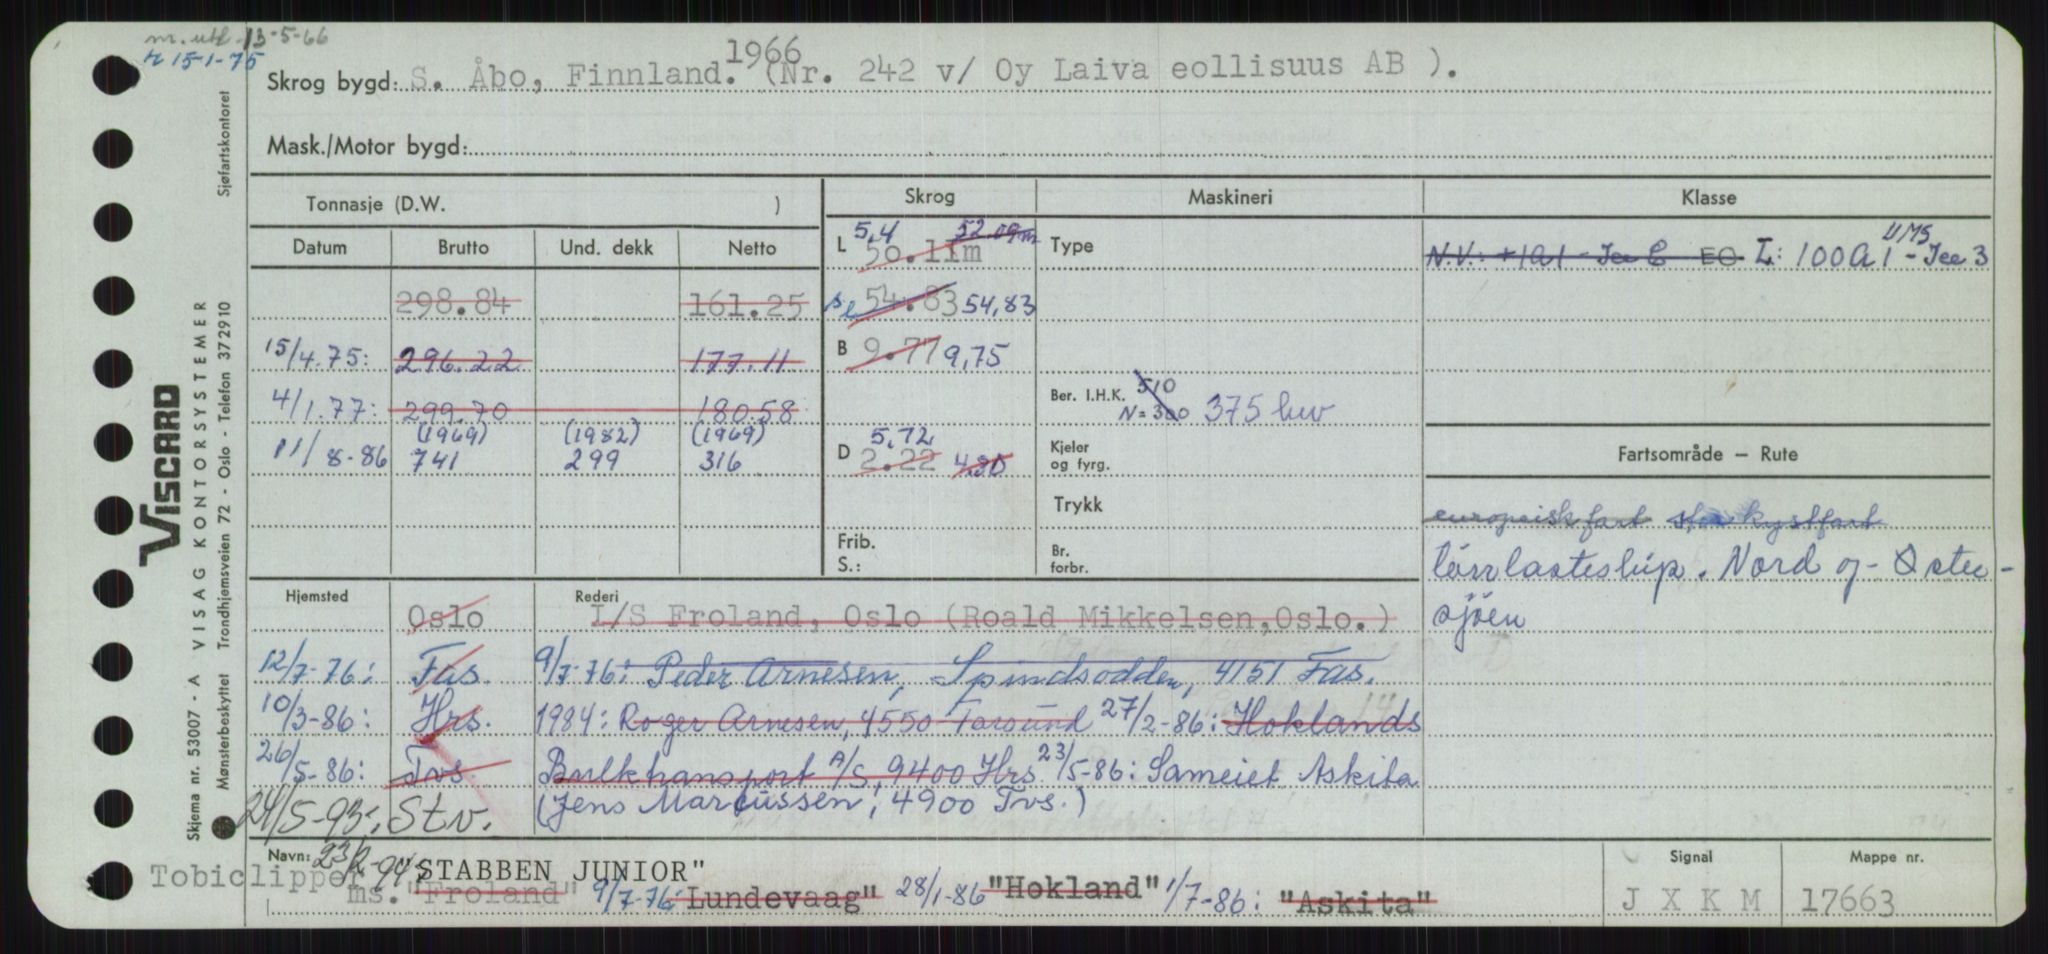 nr. utf. 13-5-66
tr 15-1-75
Skrog bygd: S. Åbo, Finnland. 1966 (Nr. 242 v/ Oy Laiva eollisuus AB ).
Mask./Motor bygd:
VISCARD
VISAG KONTORSYSTEMER
Sjøfartskontoret
Trondhjemsveien 72 - Oslo - Telefon 372910
Skjema nr. 53007 - A
Mønsterbeskyttet
Tonnasje (D.W. )
Datum Brutto Und. dekk Netto
298.84 161.25
15/4.75: 296.22 177.11
4/1.77: 299.70 180.58
(1969) (1982) (1969)
11/8-86 741 299 316
Skrog
L 50.11m 52.09m 5,4
sl 54.83 54,83
B 9.77 9,75
D 2.22 4,30 5,72
Frib.
S.:
Maskineri
Type
Ber. I.H.K. 510
N=300 375 hw
Kjeler
og fyrg.
Trykk
Br.
forbr.
Klasse
N.V.: +1A1 - Ice C EO L: 100A1 UMS - Ice 3
Fartsområde – Rute
europeisk fart stor kystfart
törrlasteskip. Nord og Østersjøen
Hjemsted Rederi
Oslo I/S Froland, Oslo (Roald Mikkelsen,Oslo.)
12/7-76: Fas. 9/7-76: Peder Arnesen, Spindsodden, 4151 Fas.
10/3-86: Hrs. 1984: Roger Arnesen, 4550 Farsund 27/2-86: Hoklands
26/5-86: Tvs. Bulktransport A/S, 9400 Hrs. 23/5-86: Sameiet Askita
24/5-93: Stv. (Jens Marcussen, 4900 Tvs.)
Navn: 23/2-94: "STABBEN JUNIOR"
Tobiclipper
ms. "Froland" 9/7-76: Lundevaag" 28/1-86 "Hokland" 1/7-86: "Askita"
Signal
J X K M
Mappe nr.
17663